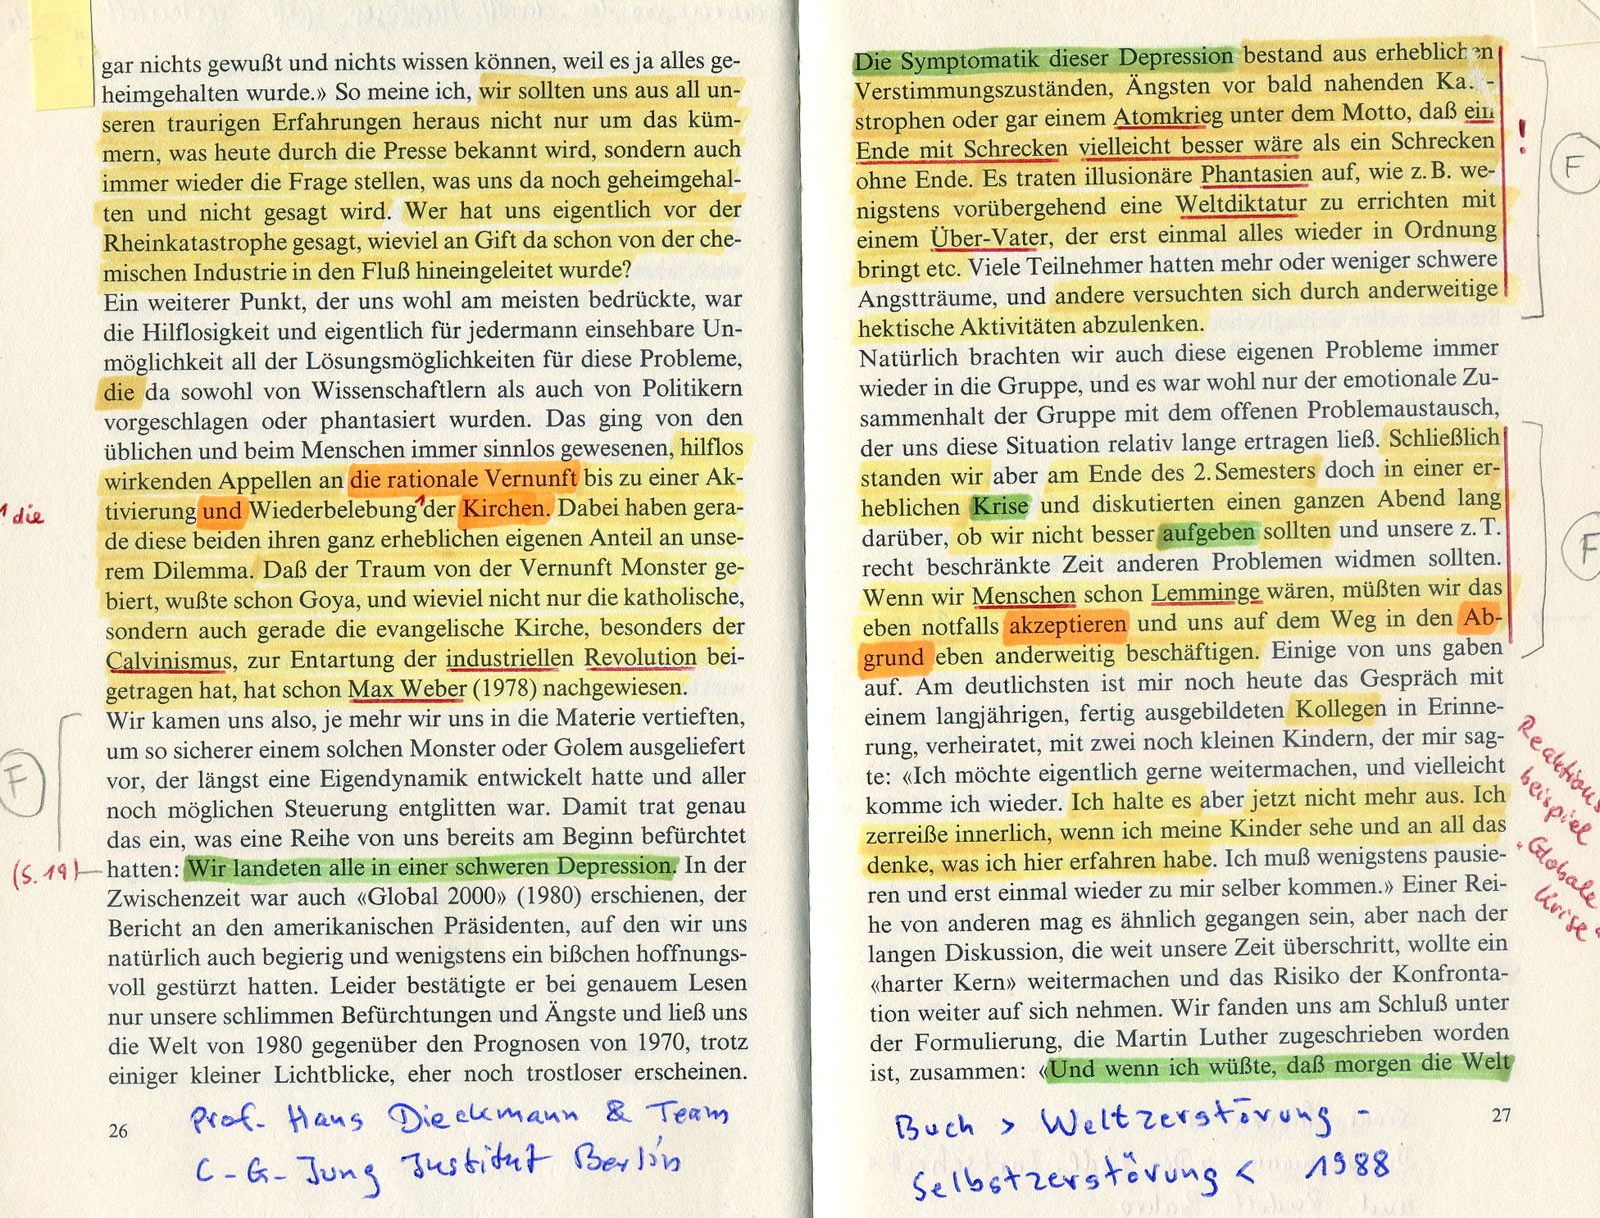 gar nichts gewußt und nichts wissen können, weil es ja alles ge-
heimgehalten wurde.» So meine ich, wir sollten uns aus all un-
seren traurigen Erfahrungen heraus nicht nur um das küm-
mern, was heute durch die Presse bekannt wird, sondern auch
immer wieder die Frage stellen, was uns da noch geheimgehal-
ten und nicht gesagt wird. Wer hat uns eigentlich vor der
Rheinkatastrophe gesagt, wieviel an Gift da schon von der che-
mischen Industrie in den Fluß hineingeleitet wurde?
Ein weiterer Punkt, der uns wohl am meisten bedrückte, war
die Hilflosigkeit und eigentlich für jedermann einsehbare Un-
möglichkeit all der Lösungsmöglichkeiten für diese Probleme,
die da sowohl von Wissenschaftlern als auch von Politikern
vorgeschlagen oder phantasiert wurden. Das ging von den
üblichen und beim Menschen immer sinnlos gewesenen, hilflos
wirkenden Appellen an die rationale Vernunft bis zu einer Ak-
tivierung und Wiederbelebung der Kirchen. Dabei haben gera-
die
de diese beiden ihren ganz erheblichen eigenen Anteil an unse-
rem Dilemma. Daß der Traum von der Vernunft Monster ge-
biert, wußte schon Goya, und wieviel nicht nur die katholische,
sondern auch gerade die evangelische Kirche, besonders der
Calvinismus, zur Entartung der industriellen Revolution bei-
getragen hat, hat schon Max Weber (1978) nachgewiesen.
Wir kamen uns also, je mehr wir uns in die Materie vertieften,
um so sicherer einem solchen Monster oder Golem ausgeliefert
F
vor, der längst eine Eigendynamik entwickelt hatte und aller
noch möglichen Steuerung entglitten war. Damit trat genau
das ein, was eine Reihe von uns bereits am Beginn befürchtet
(S. 19)
hatten: Wir landeten alle in einer schweren Depression. In der
Zwischenzeit war auch «Global 2000» (1980) erschienen, der
Bericht an den amerikanischen Präsidenten, auf den wir uns
natürlich auch begierig und wenigstens ein bißchen hoffnungs-
voll gestürzt hatten. Leider bestätigte er bei genauem Lesen
nur unsere schlimmen Befürchtungen und Ängste und ließ uns
die Welt von 1980 gegenüber den Prognosen von 1970, trotz
einiger kleiner Lichtblicke, eher noch trostloser erscheinen.
26
Prof. Hans Dieckmann & Team
C-G-Jung Institut Berlin
Die Symptomatik dieser Depression bestand aus erheblichen
Verstimmungszuständen, Ängsten vor bald nahenden Ka-
strophen oder gar einem Atomkrieg unter dem Motto, daß ein
!
Ende mit Schrecken vielleicht besser wäre als ein Schrecken
F
ohne Ende. Es traten illusionäre Phantasien auf, wie z. B. we-
nigstens vorübergehend eine Weltdiktatur zu errichten mit
einem Über-Vater, der erst einmal alles wieder in Ordnung
bringt etc. Viele Teilnehmer hatten mehr oder weniger schwere
Angstträume, und andere versuchten sich durch anderweitige
hektische Aktivitäten abzulenken.
Natürlich brachten wir auch diese eigenen Probleme immer
wieder in die Gruppe, und es war wohl nur der emotionale Zu-
sammenhalt der Gruppe mit dem offenen Problemaustausch,
der uns diese Situation relativ lange ertragen ließ. Schließlich
standen wir aber am Ende des 2. Semesters doch in einer er-
heblichen Krise und diskutierten einen ganzen Abend lang
darüber, ob wir nicht besser aufgeben sollten und unsere z. T.
F
recht beschränkte Zeit anderen Problemen widmen sollten.
Wenn wir Menschen schon Lemminge wären, müßten wir das
eben notfalls akzeptieren und uns auf dem Weg in den Ab-
grund eben anderweitig beschäftigen. Einige von uns gaben
auf. Am deutlichsten ist mir noch heute das Gespräch mit
einem langjährigen, fertig ausgebildeten Kollegen in Erinne-
rung, verheiratet, mit zwei noch kleinen Kindern, der mir sag-
te: «Ich möchte eigentlich gerne weitermachen, und vielleicht
komme ich wieder. Ich halte es aber jetzt nicht mehr aus. Ich
zerreiße innerlich, wenn ich meine Kinder sehe und an all das
denke, was ich hier erfahren habe. Ich muß wenigstens pausie-
ren und erst einmal wieder zu mir selber kommen.» Einer Rei-
he von anderen mag es ähnlich gegangen sein, aber nach der
langen Diskussion, die weit unsere Zeit überschritt, wollte ein
«harter Kern» weitermachen und das Risiko der Konfronta-
tion weiter auf sich nehmen. Wir fanden uns am Schluß unter
der Formulierung, die Martin Luther zugeschrieben worden
ist, zusammen: «Und wenn ich wüßte, daß morgen die Welt
Reaktions
beispiel
Globale
Krise
27
Buch > Weltzerstörung -
Selbstzerstörung < 1988